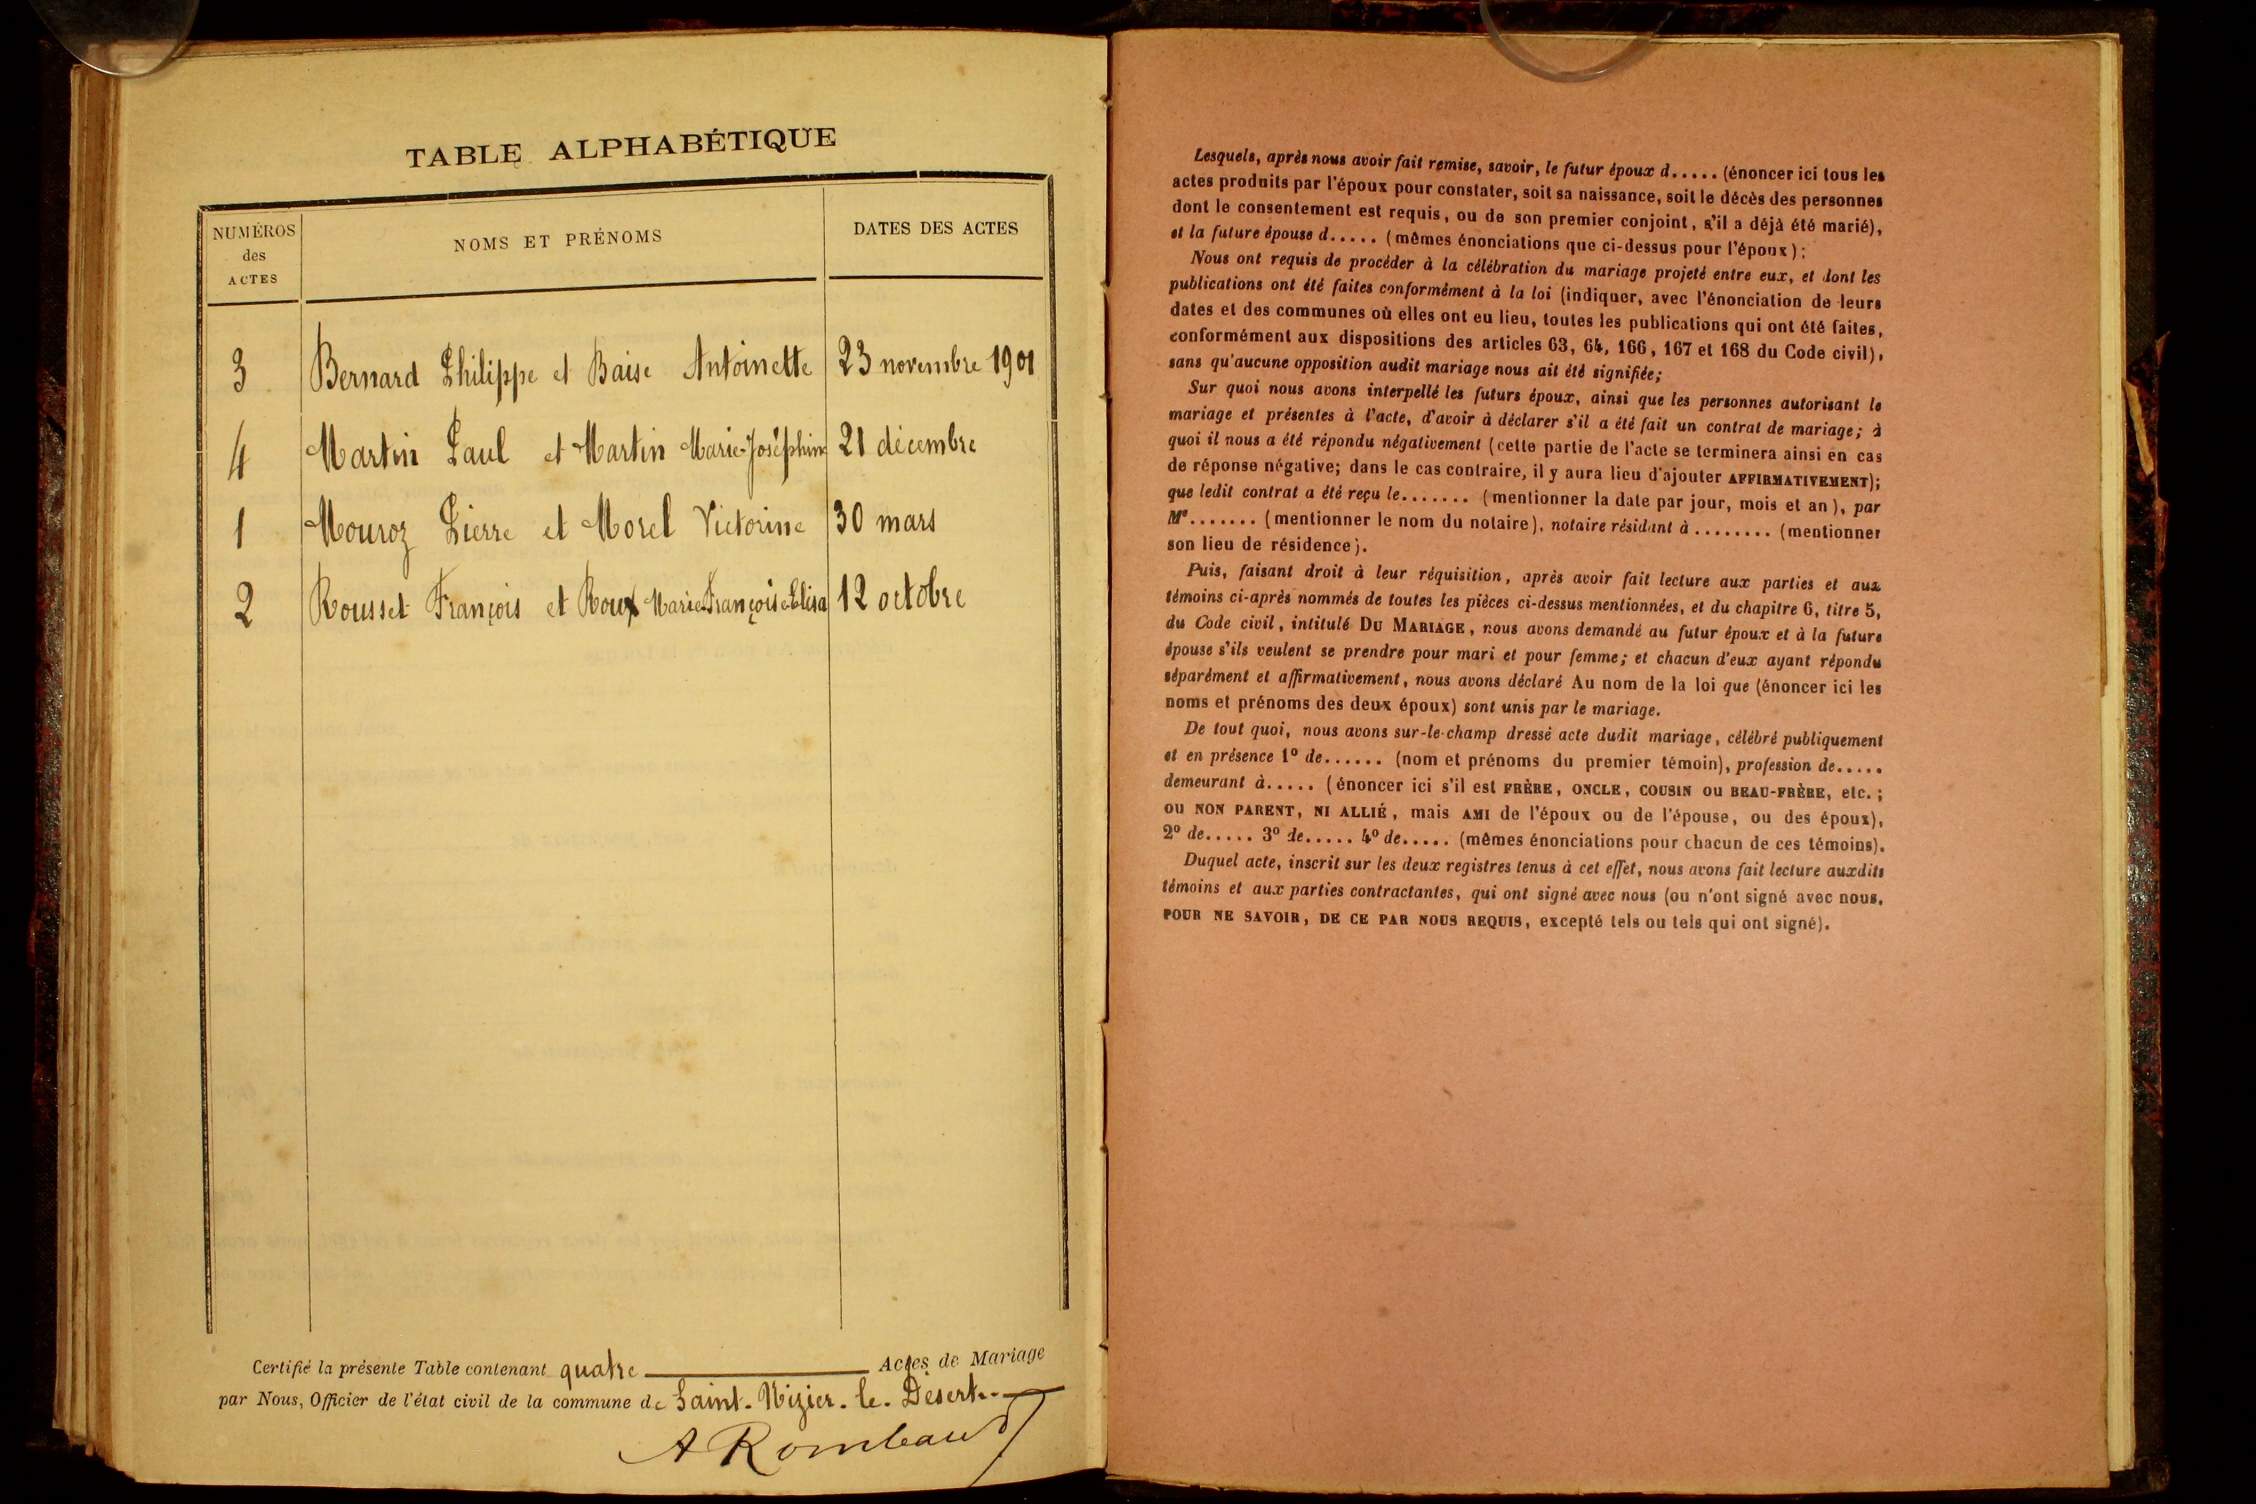 TABLE ALPHABÉTIQUE
NUMÉROS des ACTES
NOMS ET PRÉNOMS
DATES DES ACTES
3 Bernard Philippe et Baise Antoinette 23 novembre 1901
4 Martin Paul et Martin Marie-Joséphine 21 décembre
1 Mouroz Pierre et Morel Victorine 30 mars
2 Rousset François et Roux Marie Françoise Elisa 12 octobre
Certifié la présente Table contenant quatre Actes de Mariage
par Nous, Officier de l'état civil de la commune de Saint-Nizier-le-Désert.
A Rombaud
Lesquels, après nous avoir fait remise, savoir, le futur époux d..... (énoncer ici tous les
actes produits par l'époux pour constater, soit sa naissance, soit le décès des personnes
dont le consentement est requis, ou de son premier conjoint, s'il a déjà été marié),
et la future épouse d..... (mêmes énonciations que ci-dessus pour l'époux);
Nous ont requis de procéder à la célébration du mariage projeté entre eux, et dont les
publications ont été faites conformément à la loi (indiquer, avec l'énonciation de leurs
dates et des communes où elles ont eu lieu, toutes les publications qui ont été faites,
conformément aux dispositions des articles 63, 64, 166, 167 et 168 du Code civil),
sans qu'aucune opposition audit mariage nous ait été signifiée;
Sur quoi nous avons interpellé les futurs époux, ainsi que les personnes autorisant le
mariage et présentes à l'acte, d'avoir à déclarer s'il a été fait un contrat de mariage; à
quoi il nous a été répondu négativement (cette partie de l'acte se terminera ainsi en cas
de réponse négative; dans le cas contraire, il y aura lieu d'ajouter AFFIRMATIVEMENT);
que ledit contrat a été reçu le....... (mentionner la date par jour, mois et an), par
Me....... (mentionner le nom du notaire), notaire résidant à ........ (mentionner
son lieu de résidence).
Puis, faisant droit à leur réquisition, après avoir fait lecture aux parties et aux
témoins ci-après nommés de toutes les pièces ci-dessus mentionnées, et du chapitre 6, titre 5,
du Code civil, intitulé DU MARIAGE, nous avons demandé au futur époux et à la future
épouse s'ils veulent se prendre pour mari et pour femme; et chacun d'eux ayant répondu
séparément et affirmativement, nous avons déclaré Au nom de la loi que (énoncer ici les
noms et prénoms des deux époux) sont unis par le mariage.
De tout quoi, nous avons sur-le-champ dressé acte dudit mariage, célébré publiquement
et en présence 1º de...... (nom et prénoms du premier témoin), profession de.....
demeurant à..... (énoncer ici s'il est FRÈRE, ONCLE, COUSIN OU BEAU-FRÈRE, etc.;
OU NON PARENT, NI ALLIÉ, mais AMI de l'époux ou de l'épouse, ou des époux),
2º de..... 3º de..... 4º de..... (mêmes énonciations pour chacun de ces témoins).
Duquel acte, inscrit sur les deux registres tenus à cet effet, nous avons fait lecture auxdits
témoins et aux parties contractantes, qui ont signé avec nous (ou n'ont signé avec nous,
POUR NE SAVOIR, DE CE PAR NOUS REQUIS, excepté tels ou tels qui ont signé).